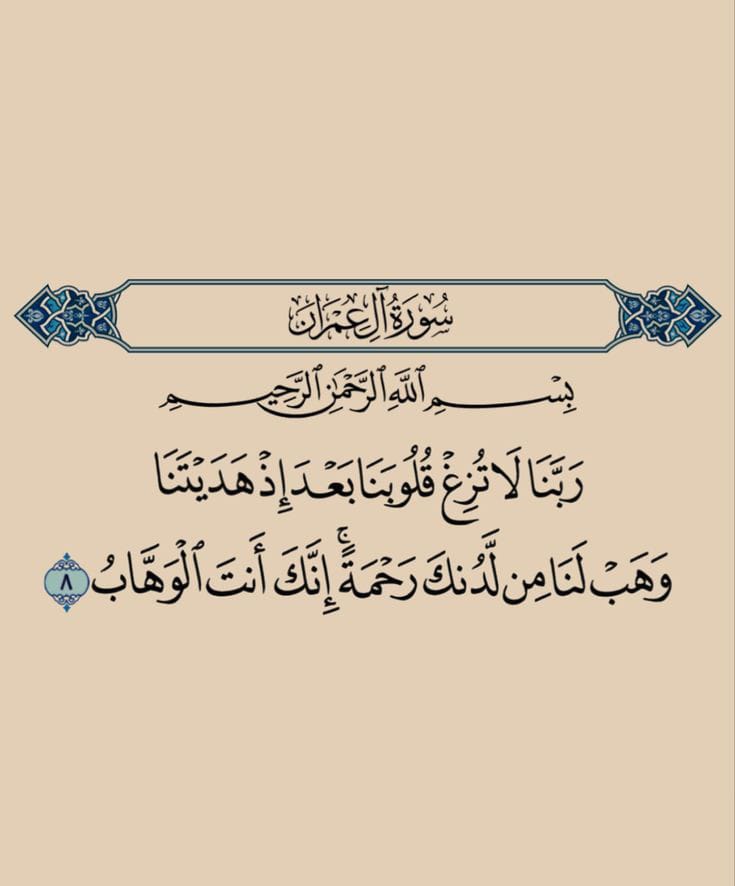 سُورَةُ آلِ عِمْرَانَ
بِسْمِ ٱللَّهِ ٱلرَّحْمَٰنِ ٱلرَّحِيمِ
رَبَّنَا لَا تُزِغْ قُلُوبَنَا بَعْدَ إِذْ هَدَيْتَنَا
وَهَبْ لَنَا مِن لَّدُنكَ رَحْمَةً ۚ إِنَّكَ أَنتَ ٱلْوَهَّابُ ٨